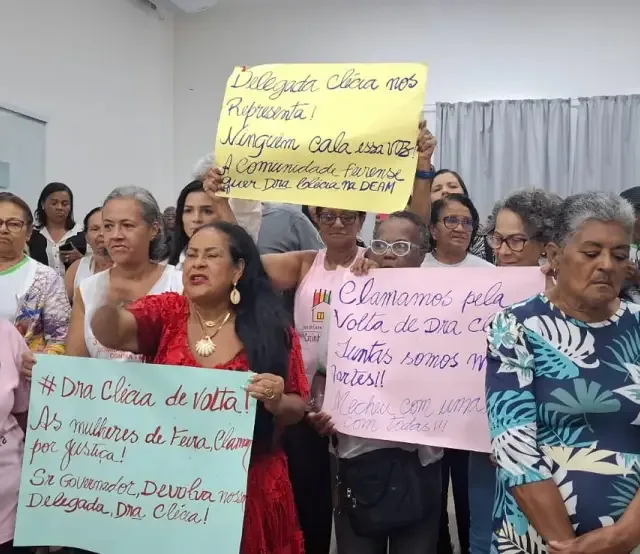 Delegada Clécia nos
Representa!
Ninguém cala essa voz!
A Comunidade Feirense
quer Dra Clécia na DEAM
Clamamos pela
Volta de Dra Cl
Juntas somos m
fortes!!
Mecheu com uma
com todas!!!
#Dra Clécia de Volta!
As mulheres de Feira, Clamam
por justiça!
Sr Governador, Devolva nossa
Delegada, Dra Clécia!